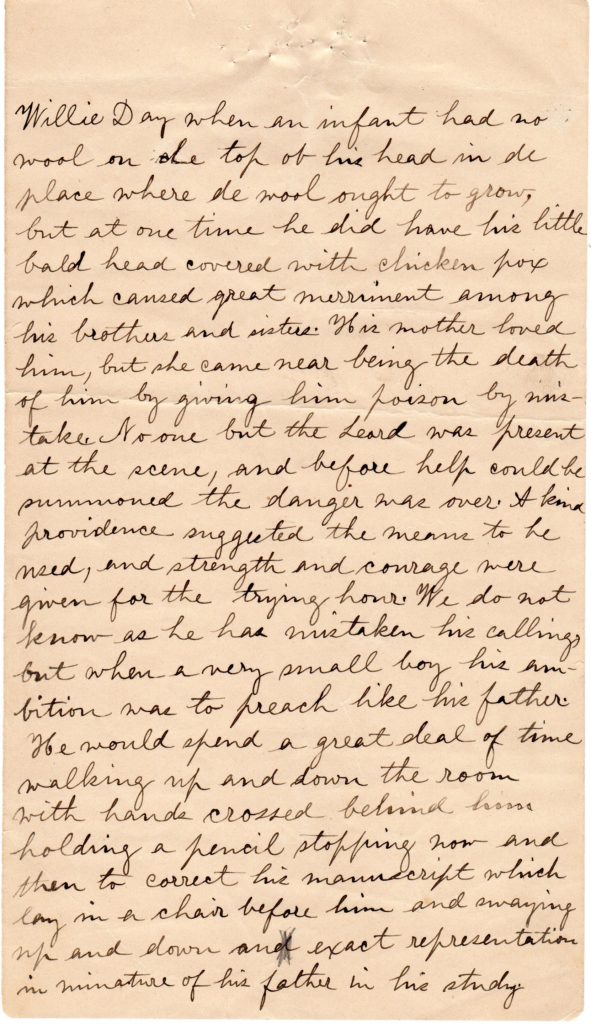 Willie Day when an infant had no
wool on de top ob his head in de
place where de wool ought to grow,
but at one time he did have his little
bald head covered with chicken pox
which caused great merriment among
his brothers and sisters. His mother loved
him, but she came near being the death
of him by giving him poison by mis-
take. No one but the Leord was present
at the scene, and before help could be
summoned the danger was over. A kind
providence suggested the means to be
used, and strength and courage were
given for the trying hour. We do not
know as he has mistaken his calling,
but when a very small boy his am-
bition was to preach like his father.
He would spend a great deal of time
walking up and down the room
with hands crossed behind him
holding a pencil stopping now and
then to correct his manuscript which
lay in a chair before him and swaying
up and down an exact representation
in minature of his father in his study.